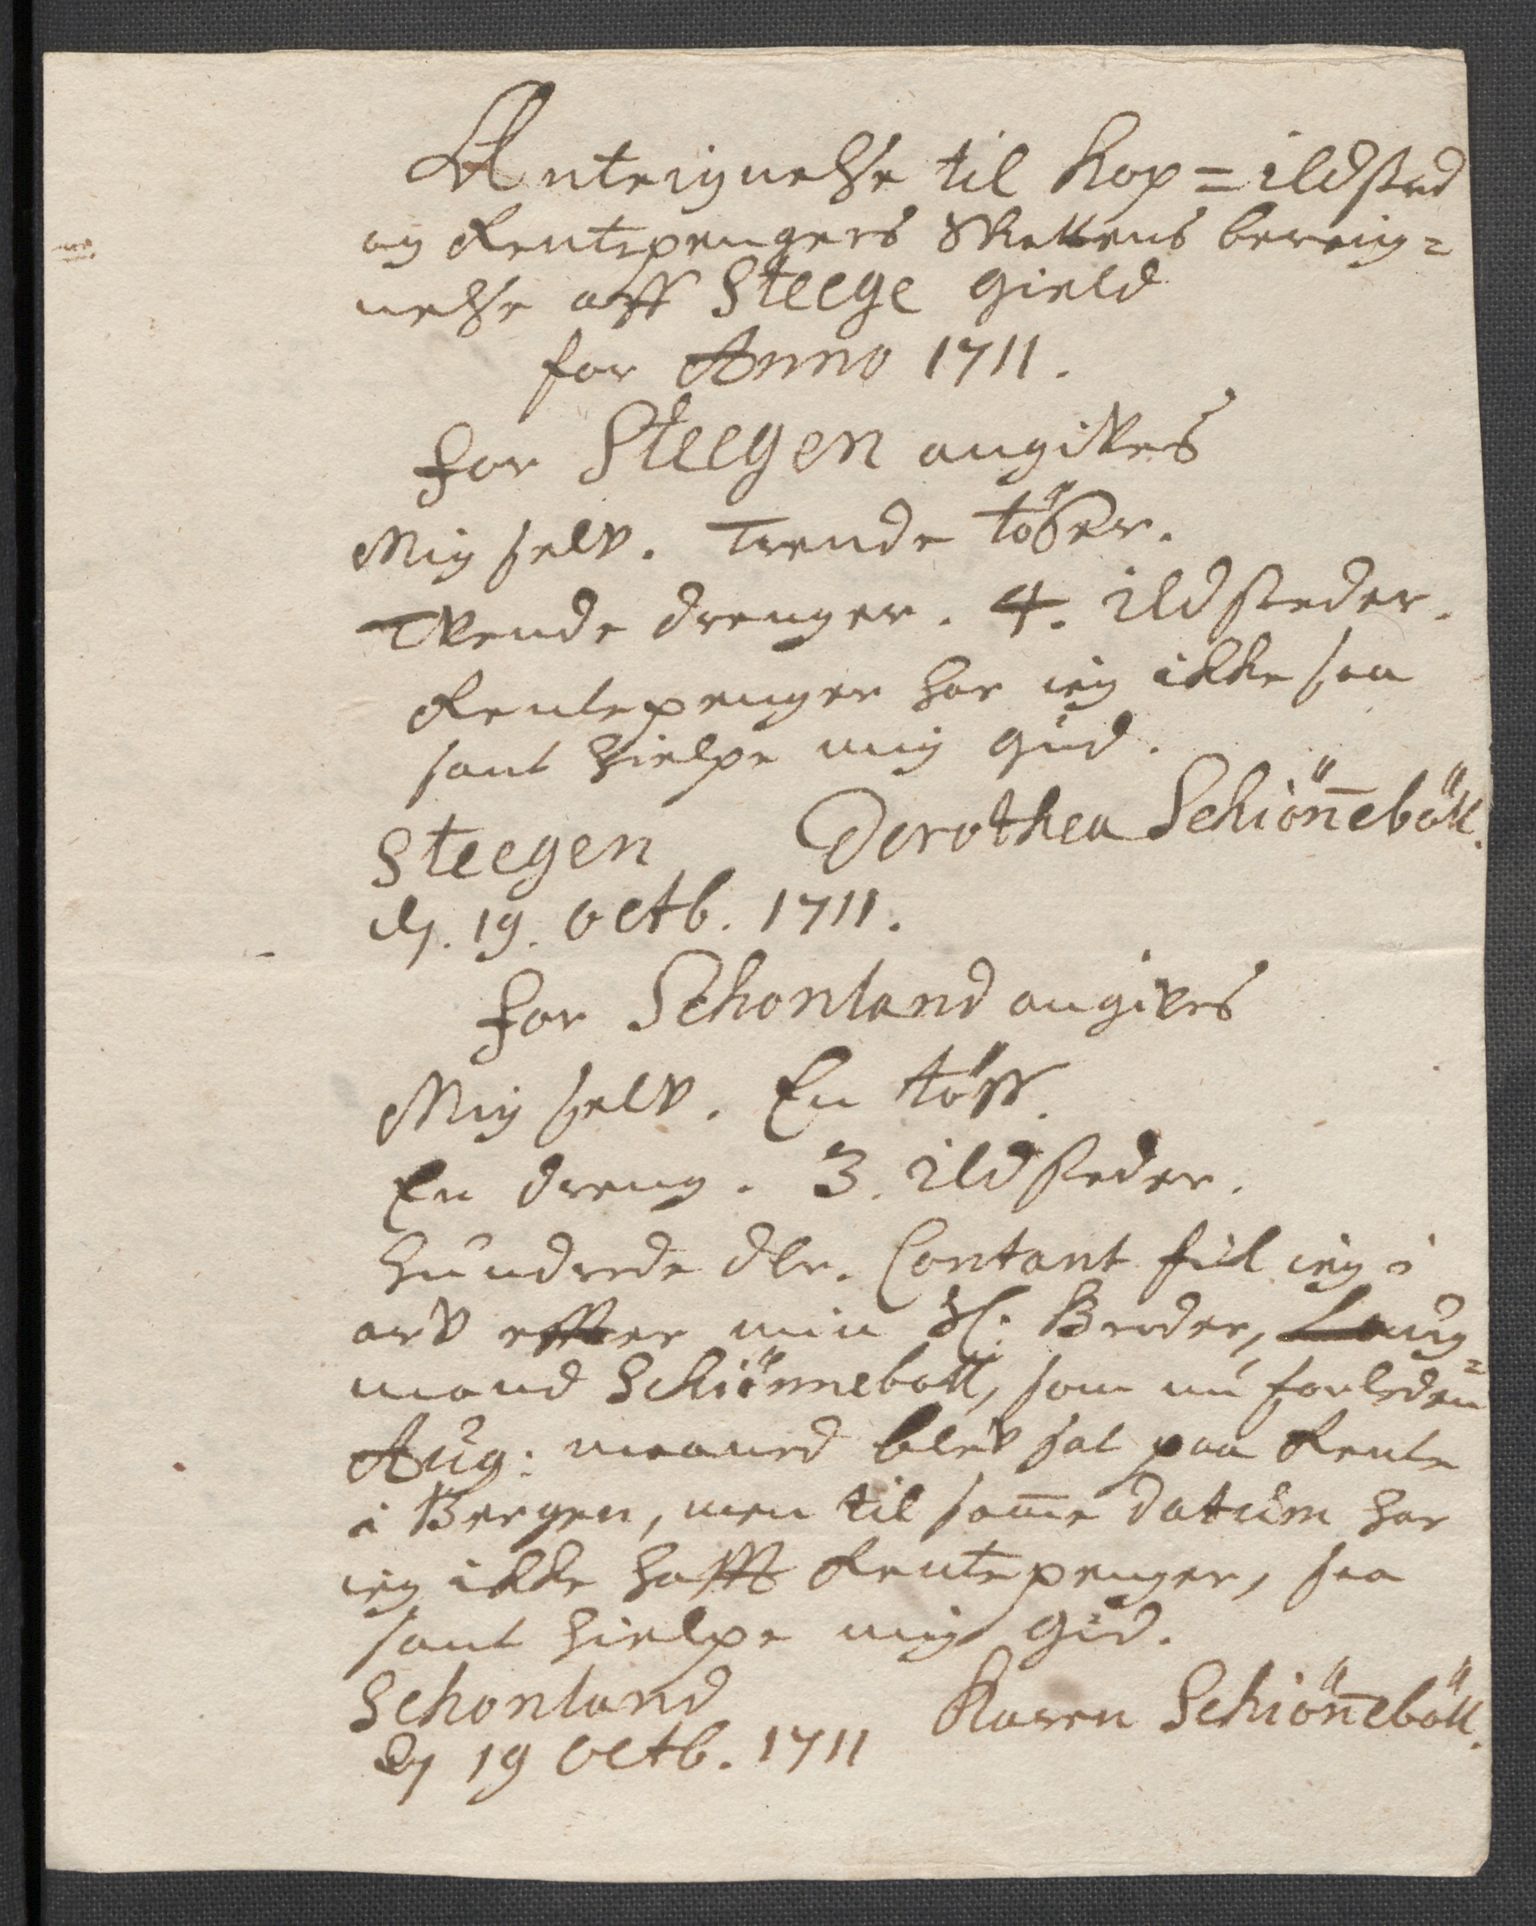 Anteignelse til Kop=ildsted
og Rentepengers Skattens bereig=
nelse aff Steege gield
for Anno 1711.
for Steegen angives
Mig selv. Trende töser.
Tvende drenger. 4. ildsteder.
Rentepenger har ieg ikke saa
sant hielpe mig Gud.
Steegen Dorothea Schiön̄eböll.
dn. 19. Octb. 1711.
for Schonland angives
Mig selv. En töss.
En dreng. 3. ildsteder.
hundrede dlr. Contant fik ieg i
arv effter min Sl: Broder, Laug=
mand Schiönneboll, som nu forleden
Aug: maaned blev sat paa Rente
i Bergen, men til sam̄e datum har
ieg ikke hafft Rentepenger, saa
sant hielpe mig Gud.
Schonland Karen Schiön̄eböll.
dn 19 Octb. 1711